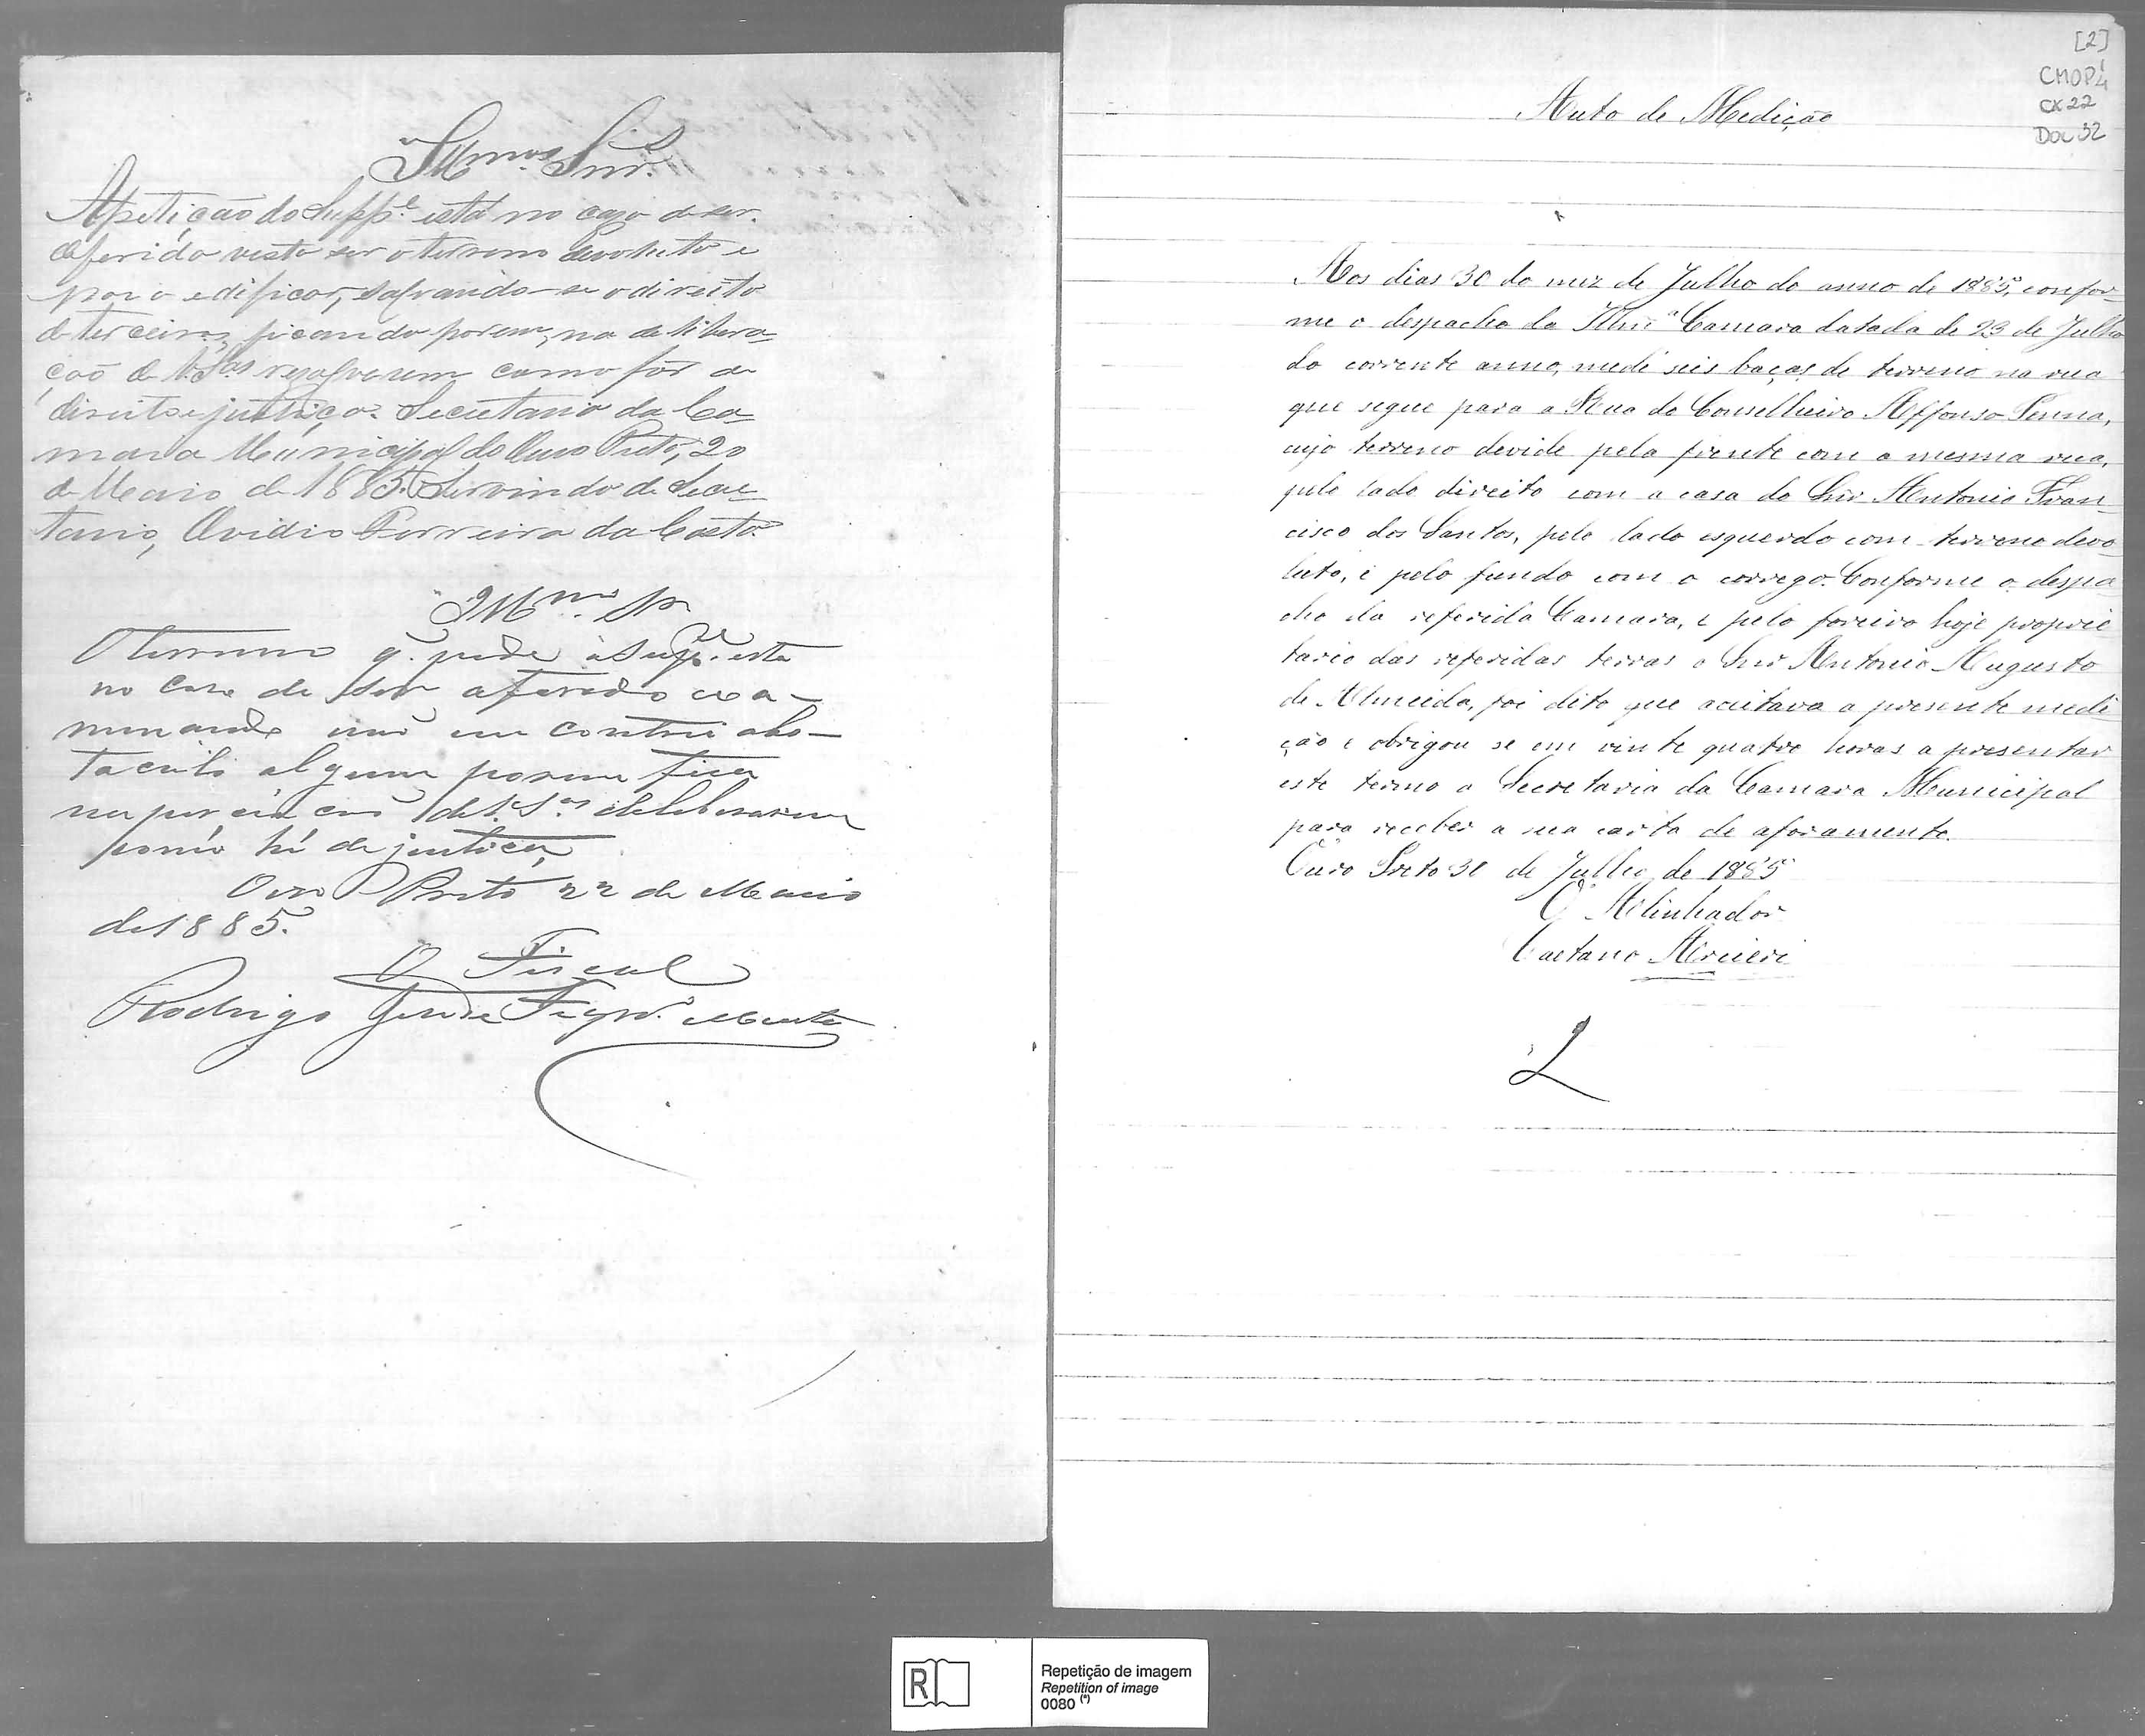 Illmos. Snrs.
A petição do Suppe. está no cazo de ser
deferida visto ser o terreno devoluto e
para edificar, salvando-se o direito
de terceiros, ficando porem, na delibera-
ção de V. Sas resolverem como fôr de
direito e justiça. Secretaria da Ca-
mara Municipal do Ouro Preto, 20
de Maio de 1885. Servindo de Secre-
tario, Ovidio Ferreira da Costa.
Illmos. Sr.
O terreno q. pede o Suppe. esta
no caso de ser aforado exa-
minando não en contrei obs-
taculo algum porem fica
de V. Sas deliberarem
de justiça,
Ouro Preto 22 de Maio
de 1885.
O Fiscal
Rodrigo José de Figdo. Murta
[2]
CMOP
CX 22
DOC 32
Auto de Medição
Aos dias 30 do mez de Julho do anno de 1885, confor-
me o despacho da Illma Camara datada de 23 de Julho
do corrente anno, medi seis baças de terreno na rua
que segue para a Rua do Conselheiro Affonso Penna,
cujo terreno devide pela frente com a mesma rua,
pelo lado direito com a casa do Snr Antonio Fran-
cisco dos Santos, pelo lado esquerdo com terreno devo-
luto, e pelo fundo com o corrego. Conforme o despa-
cho da referida Camara, e pelo foreiro hoje proprie
tario das referidas terras o Snr Antonio Augusto
de Almeida, foi dito que aceitava a presente medi
ção e obrigou se em vinte quatro horas a presentar
este termo a Secretaria da Camara Municipal
para receber a sua carta de aforamento.
Ouro Preto 30 de Julho de 1885
O Alinhador
Caetano
R
Repetição de imagem
Repetition of image
0080 (*)